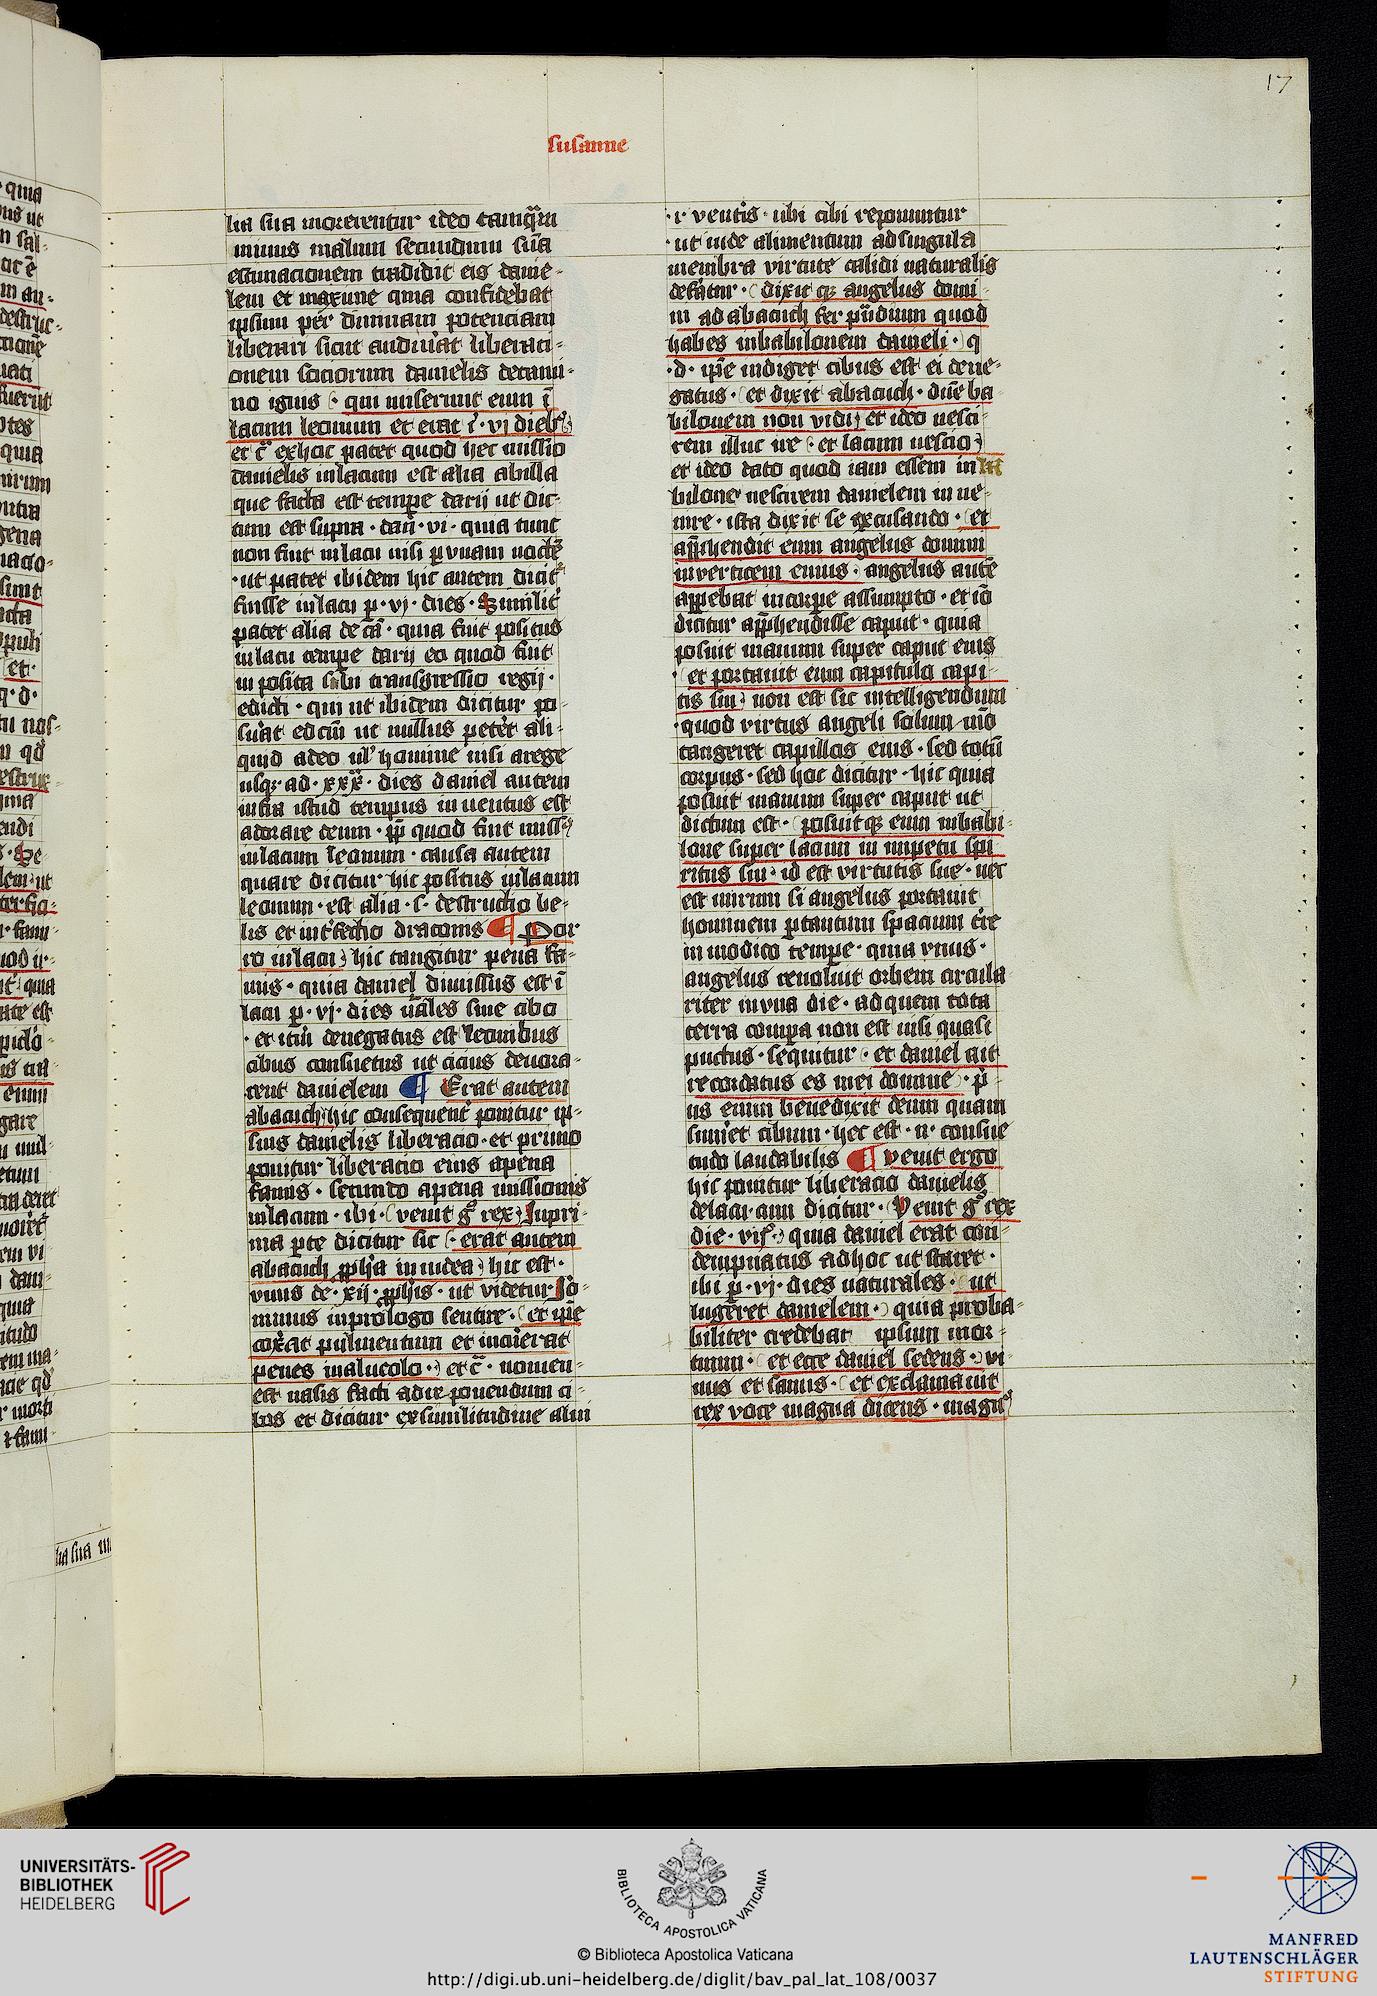 17
susanne
lia sua morerentur ideo tamq̄m
minus malum secundum suā
estimacionem tradidit eis danie-
lem et maxime quia confidebat
ipsum per diuinam potenciam
liberari sicut audiu'at liberati-
onem sociorum danielis decami-
no ignis · qui miserunt eum ī
lacum leonum et erat i'· vj dieb'
et c̄ exhoc patet quod hec missio
danielis inlacum est alia abilla
que facta est tempe darij ut dic-
tum est supra · dan̄ · vi · quia tunc
non fuit inlacu nisi p vnam noctē
· ut patet ibidem hic autem dicit'
fuisse inlacu p · vj · dies · Similit'
patet alia de cā · quia fuit positus
inlacu tempe darij eo quod fuit
in posita sibi transgressio regij ·
edicti · qui ut ibidem dicitur po-
su'at edcm̄ ut nullus pet'et ali-
quid adeo ul' homine nisi arege
usq; ad · xxx · dies daniel autem
infra istud tempus in uentus est
adorare deum · pp̄ quod fuit miss9
inlacum leonum · causa autem
quare dicitur hic positus inlacum
leonum · est alia · s · destructio be-
lis et int'fectio draconis ¶ Por
ro inlacu hic tangitur pena fa-
mis · quia daniel dimissus est ī
lacu p · vj · dies nāles sine cibo
· et itm̄ denegatus est leonibus
cibus consuetus ut cicius deuora-
rent danielem ¶ Erat autem
abacuch hic consequent' ponitur ip-
sius danielis liberacio · et primo
ponitur liberacio eius apena
famis · secundo apena missionis
inlacum · ibi · venit g° rex Inpri-
ma pte dicitur sic · erat autem
abacuch ppha in iudea hic est ·
vnus de · xij · pphis · ut videtur Jo-
nimus inprologo sentire · et ipē
cox'at pulmentum et intri'erat
penes inalueolo · et c̄ · nomen-
est uasis facti adre ponendum ci-
bos et dicitur exsimilitudine alui
· r ventris · ubi cibi reponuntur
· ut inde alimentum adsingula
membra virtute calidi naturalis
defatur · dixit q; angelus domi
ni ad abacuch fer pn̄dium quod
habes inbabilonem danieli · q
· d · ipē indiget cibus est ei dene-
gatus · et dixit abacuch · dūe ba
bilonem non vidi et ideo nesci
rem illuc ire · et lacum nescio
et ideo dato quod iam essem in
bilone nescirem danielem in ue-
nire · ista dixit se excusando · et
app̄hendit eum angelus domini
inverticem eiuus · angelus autē
appebat incorpe assumpto · et iō
dicitur app̄hendisse caput · quia
posuit manum super caput eius
· et portauit eum capitulo capi-
tis sui non est sic intelligendum
· quod virtus angeli solum mō
tangeret capillos eius · sed totū
corpus · sed hoc dicitur · hic quia
posuit manum super caput ut
dictum est · posuitq; eum inbabi-
lone super lacum in inpetu spi
ritus sui · id est virtutis sue · nec
est mirum si angelus portauit
hominem ptantum spacium t're
in modico tempe · quia vnus ·
angelus reuoluit orbem circula
riter inuna die · adquem tota
terra compa non est nisi quasi
puctus · sequitur · et daniel ait
recordatus es mei domine · p'
us enim benedixit deum quam
sum'et cibum · hec est · n · consue
tudo laudabilis ¶ venit ergo
hic ponitur liberacio danielis
delacu cum dicitur · Venit g° rex
die · vij° · quia daniel erat con-
dempnatus adhoc ut staret ·
ibi p · vj · dies naturales · ut
lugeret danielem · quia proba-
biliter credebat ipsum mor-
tuum · et ecce daniel sedens · vi
uus et sanus · et exclamauit
rex voce magna dicens · magn9
UNIVERSITÄTS-
BIBLIOTHEK
HEIDELBERG
BIBLIOTECA APOSTOLICA VATICANA
© Biblioteca Apostolica Vaticana
http://digi.ub.uni-heidelberg.de/diglit/bav_pal_lat_108/0037
MANFRED
LAUTENSCHLÄGER
STIFTUNG